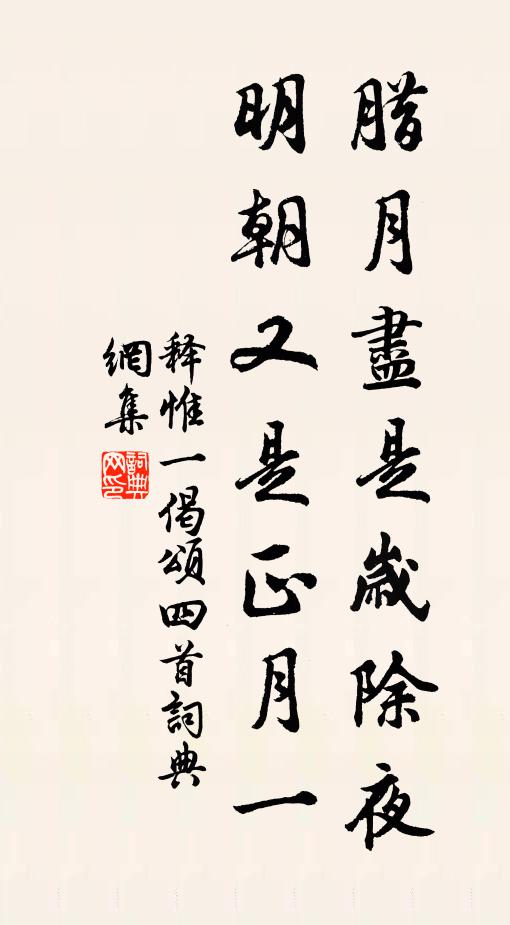 腊月盡是歲除夜
明朝又是正月一
释惟一偈頌四首詞典
網集
詞典网印